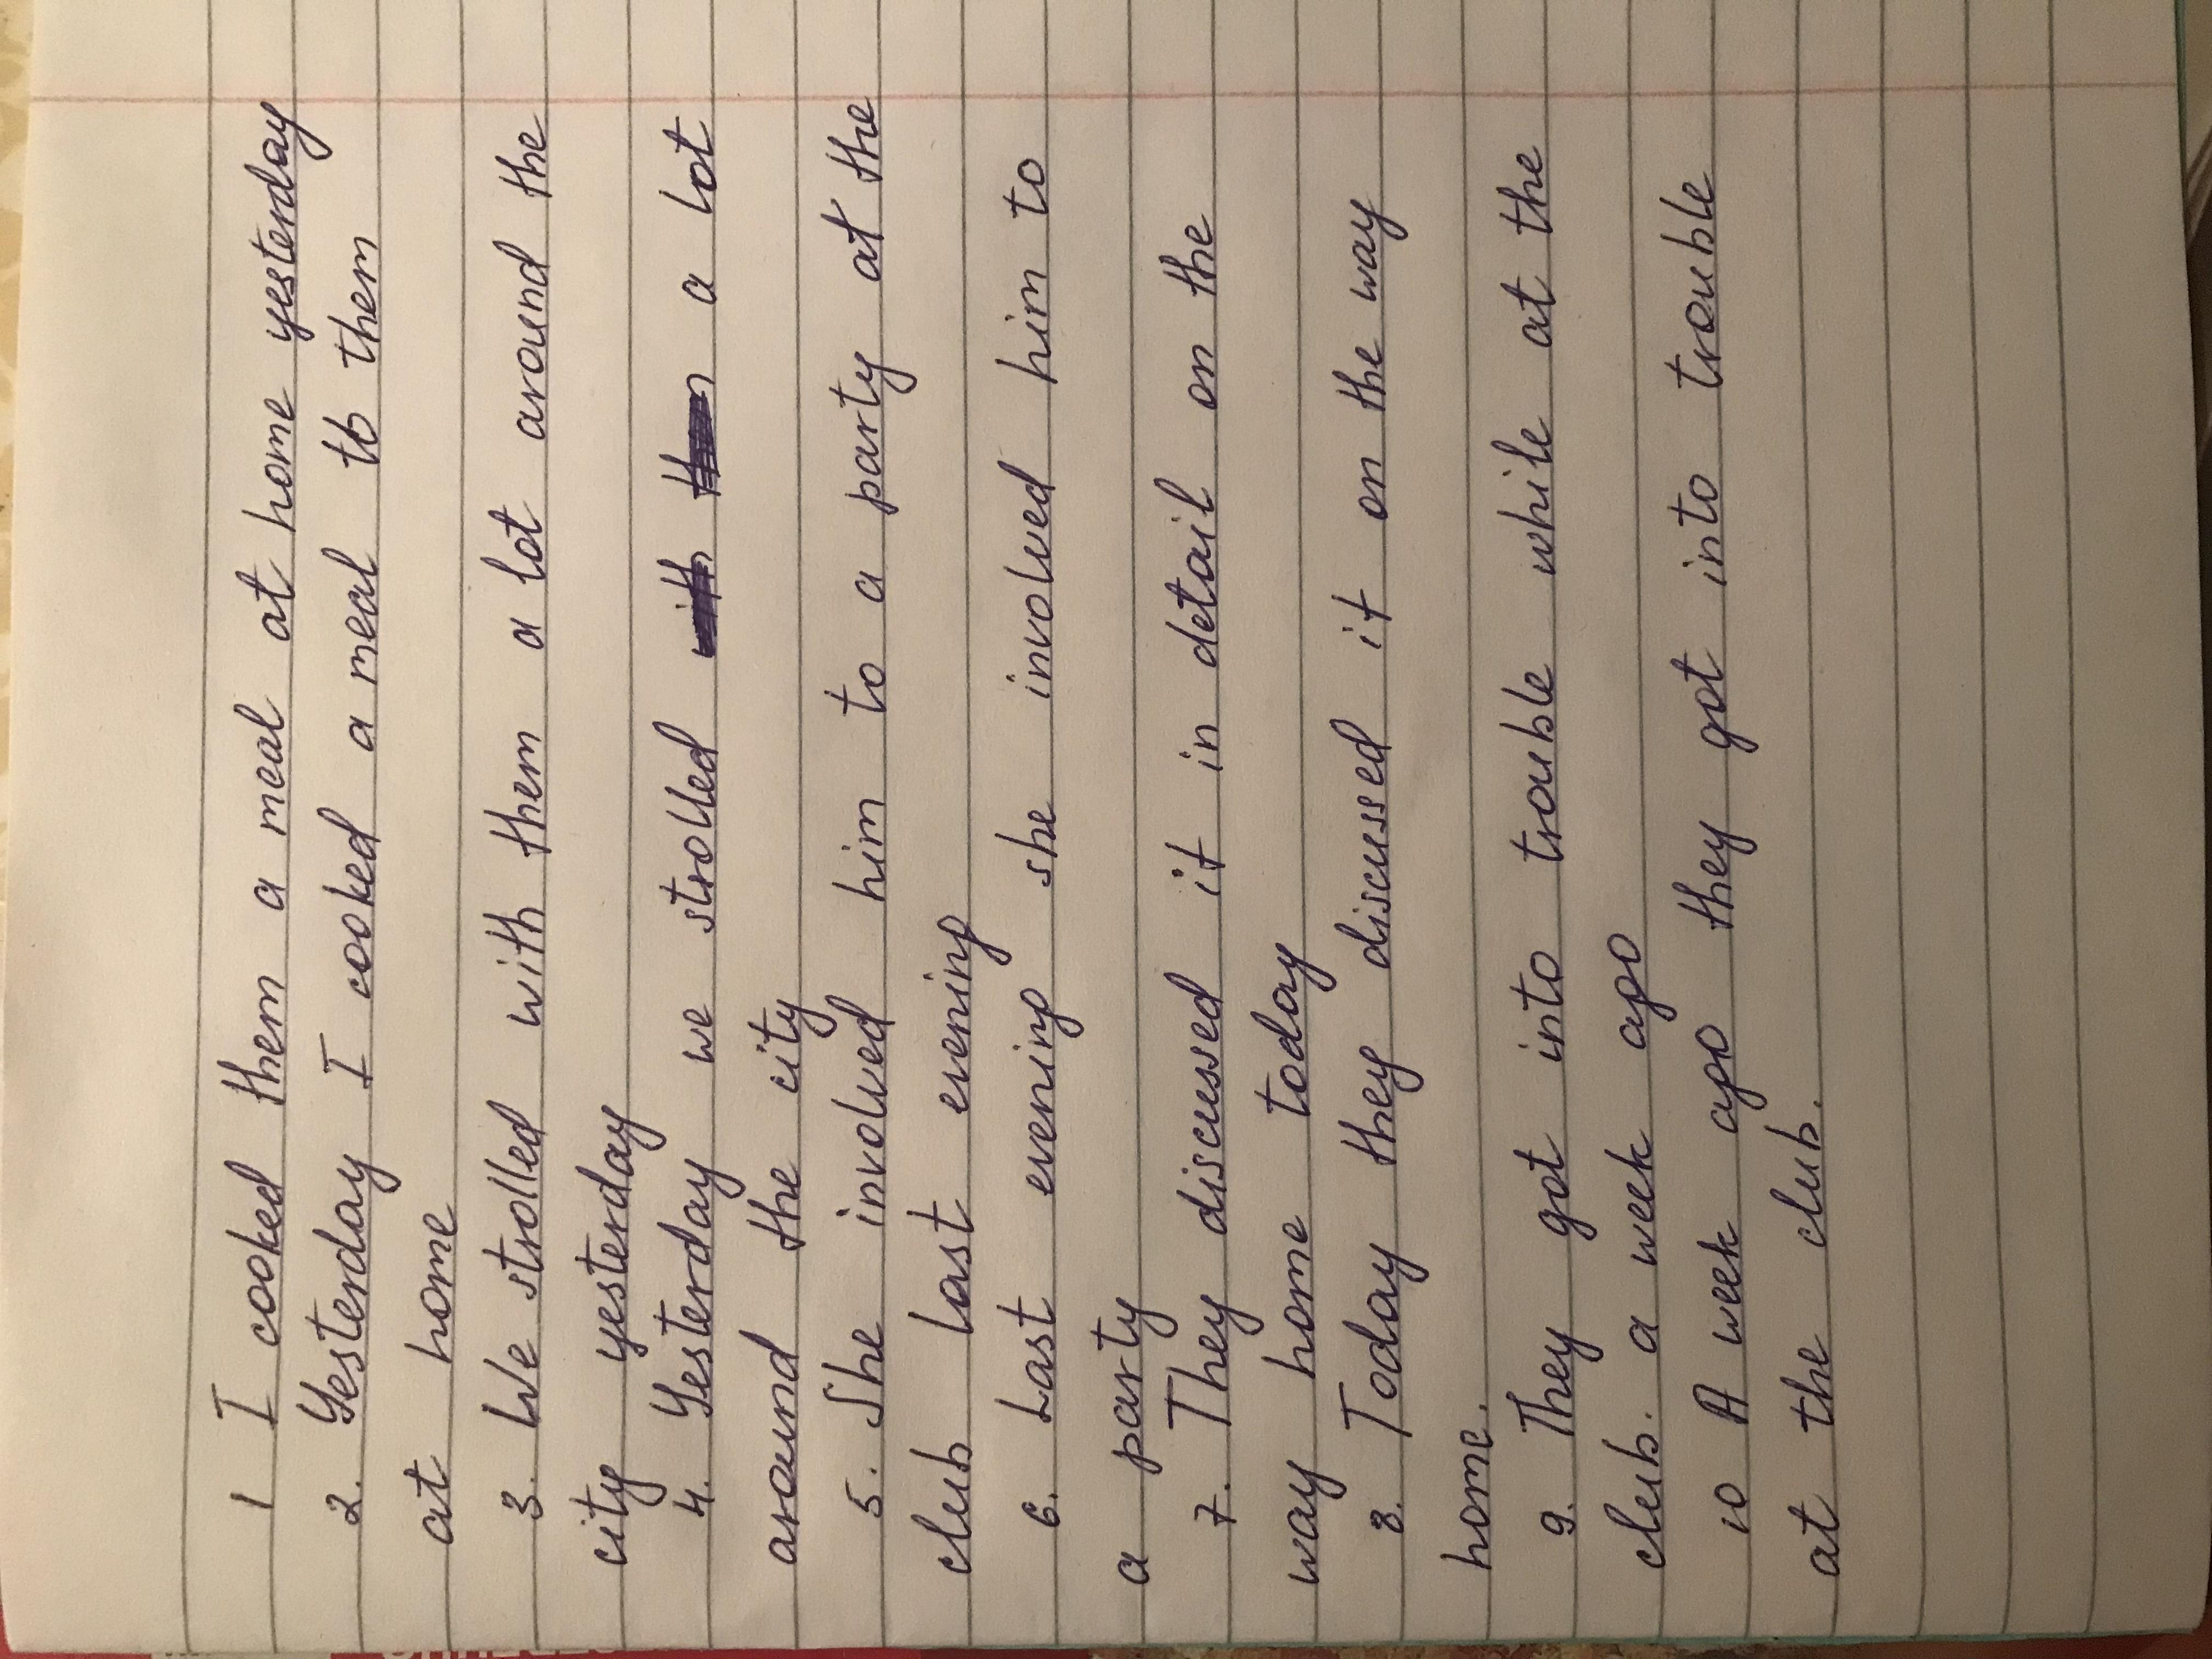 1 I cooked them a meal at home yesterday
2. Yesterday I cooked a meal to them
at home
3. We strolled with them a lot around the
city yesterday
4. Yesterday we strolled with them a lot
around the city
5. She involved him to a party at the
club last evening
6. Last evening she involved him to
a party
7. They discussed it in detail on the
way home today
8. Today they discussed it on the way
home.
9. They got into trouble while at the
club. a week ago
10 A week ago they got into trouble
at the club.